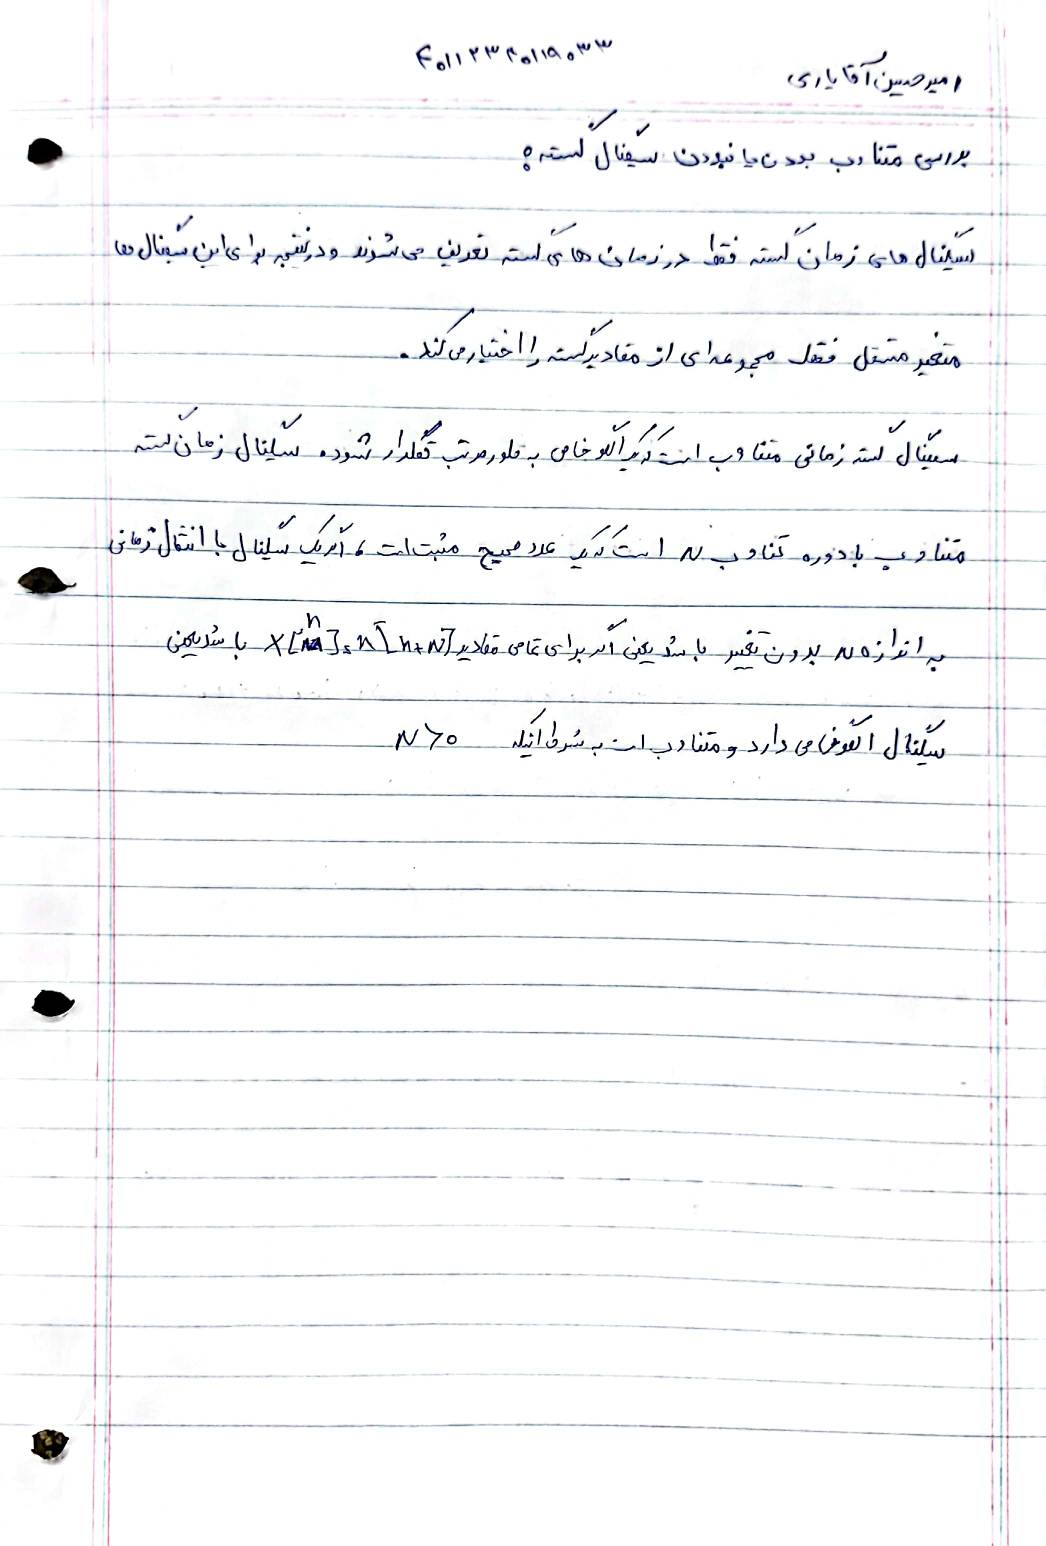 ۴۰۱۱۲۳۴۰۱۱۹۰۳۳
امیرحسین آقا یاری
بررسی متناوب بودن یا نبودن سیگنال گسسته:
سیگنال های زمان گسسته فقط در زمان های گسسته تعریف می شوند و در نتیجه برای این سیگنال ها
متغیر مستقل فقط مجموعه ای از مقادیر گسسته را اختیار می کند.
سیگنال گسسته زمانی متناوب است که یک الگو خاص به طور مرتب تکرار شود. سیگنال زمان گسسته
متناوب با دوره تناوب N است که یک عدد صحیح مثبت است، اگر یک سیگنال با انتقال زمانی
به اندازه N بدون تغییر باشد یعنی اگر برای تمامی مقادیر x[n] = x[n+N] باشد یعنی
سیگنال الگو خاصی دارد و متناوب است به شرط اینکه N>0